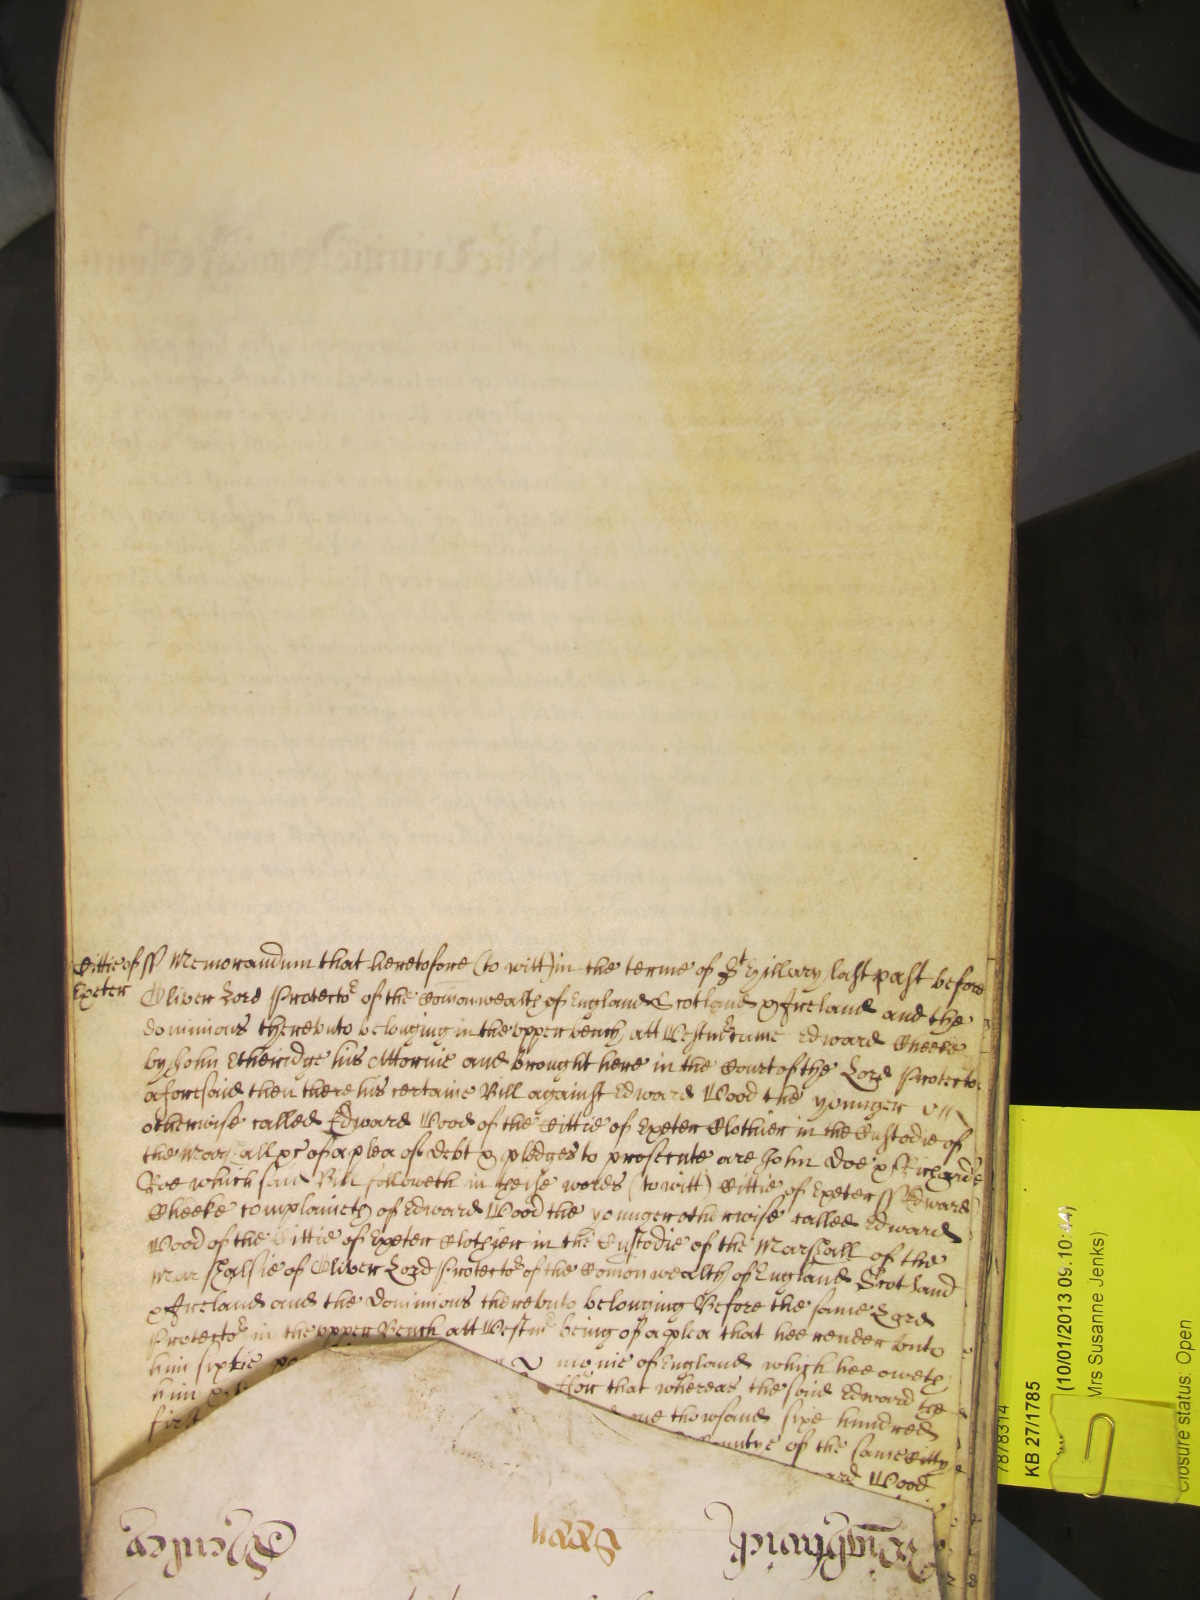 Cittie of ss Memorandum that heretofore (to witt) in the terme of St Hillary last past before
Exeter Oliver Lord Protector of the Comonwealth of England Scotland & Ireland and the
dominions therevnto belonging in the vpper bench att Westmr came Edward Cheeke
by John Etheridge his Attornie and brought here in the Court of the Lord Protector
aforesaid then there his certaine Bill against Edward Wood the younger
otherwise called Edward Wood of the Cittie of Exeter Clothier in the Custodie of
the Marshall &c of a plea of debt & pledges to prosecute are John Doe & Richard
Roe which said Bill followeth in theise words (to witt) Cittie of Exeter ss Edward
Cheeke complaineth of Edward Wood the younger otherwise called Edward
Wood of the Cittie of Exeter Clothier in the Custodie of the Marshall of the
Marshalsie of Oliver Lord Protector of the Comonwealth of England Scotland
& Ireland and the dominions therevnto belonging Before the same Lord
Protector in the vpper Bench att Westmr being of a plea that hee render vnto
him sixtie monie of England which hee oweth
him for that whereas the said Edward the
first one thowsand sixe hundred
Countye of the same Citty
Wood
Wightwick
Henley
7878314
KB 27/1785
(10/01/2013 09:10:44)
Mrs Susanne Jenks)
Closure status: Open